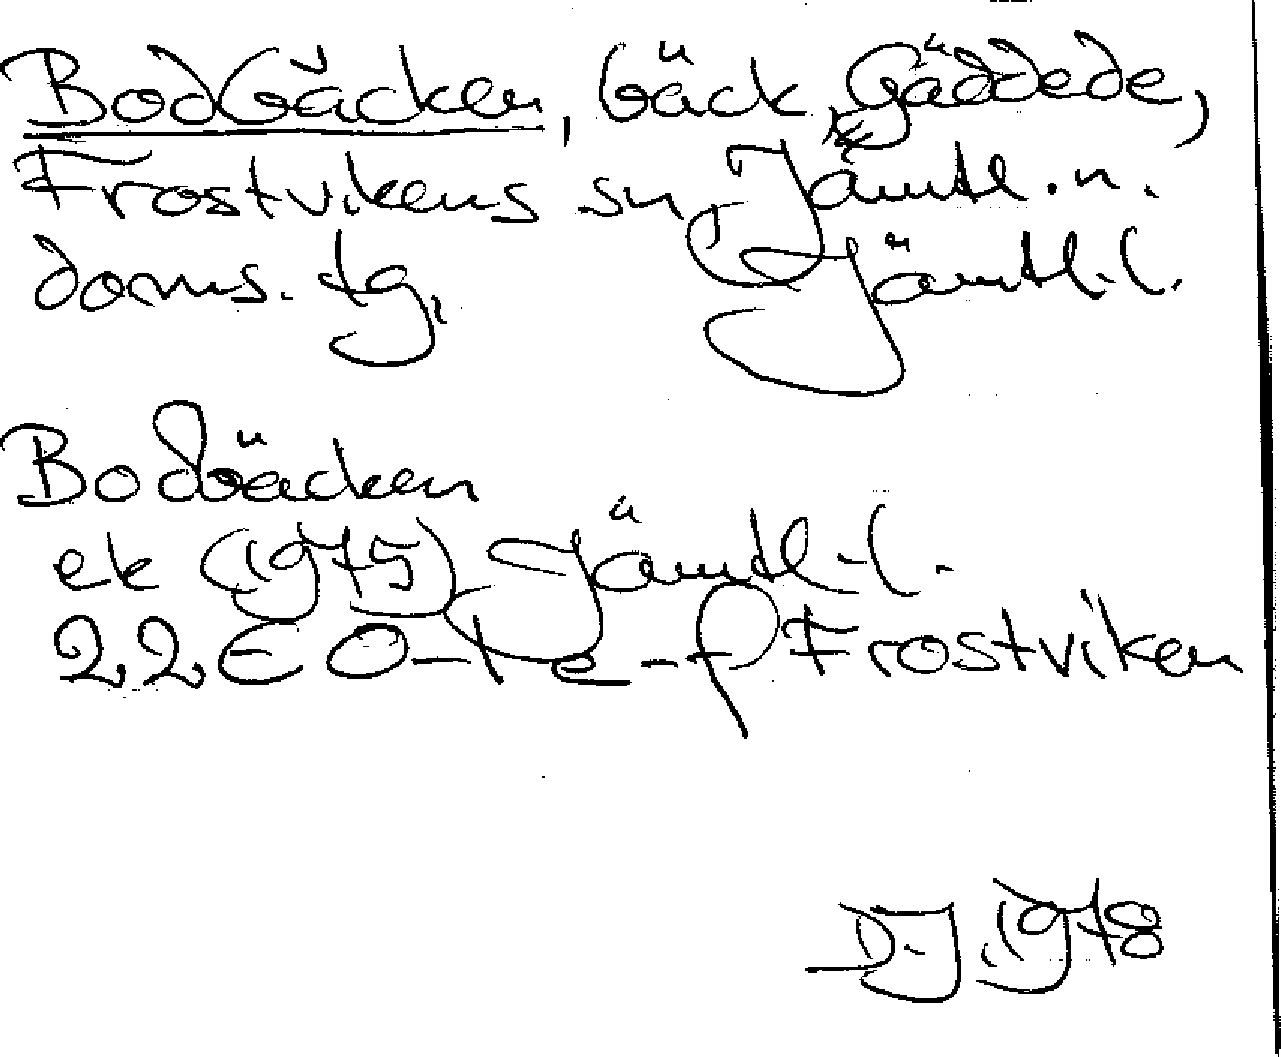 Bodbäcken, bäck, Gäddede,
Frostvikens sn, Jämtl. n.
doms. tg, Jämtl. l.
Bodbäcken
ek (1975) Jämtl. l.
22E 0-1 e-f Frostviken
DJ 1978